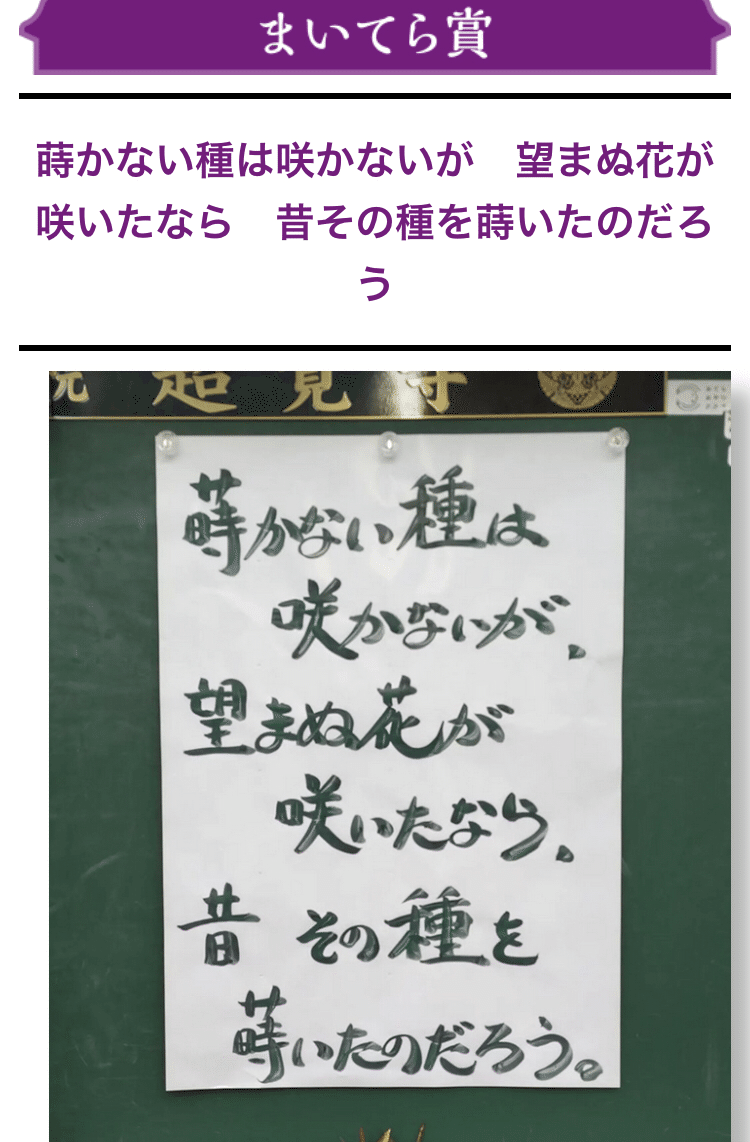 まいてら賞
蒔かない種は咲かないが　望まぬ花が
咲いたなら　昔その種を蒔いたのだろ
う
超覚寺
蒔かない種は
咲かないが、
望まぬ花が
咲いたなら、
昔 その種を
蒔いたのだろう。